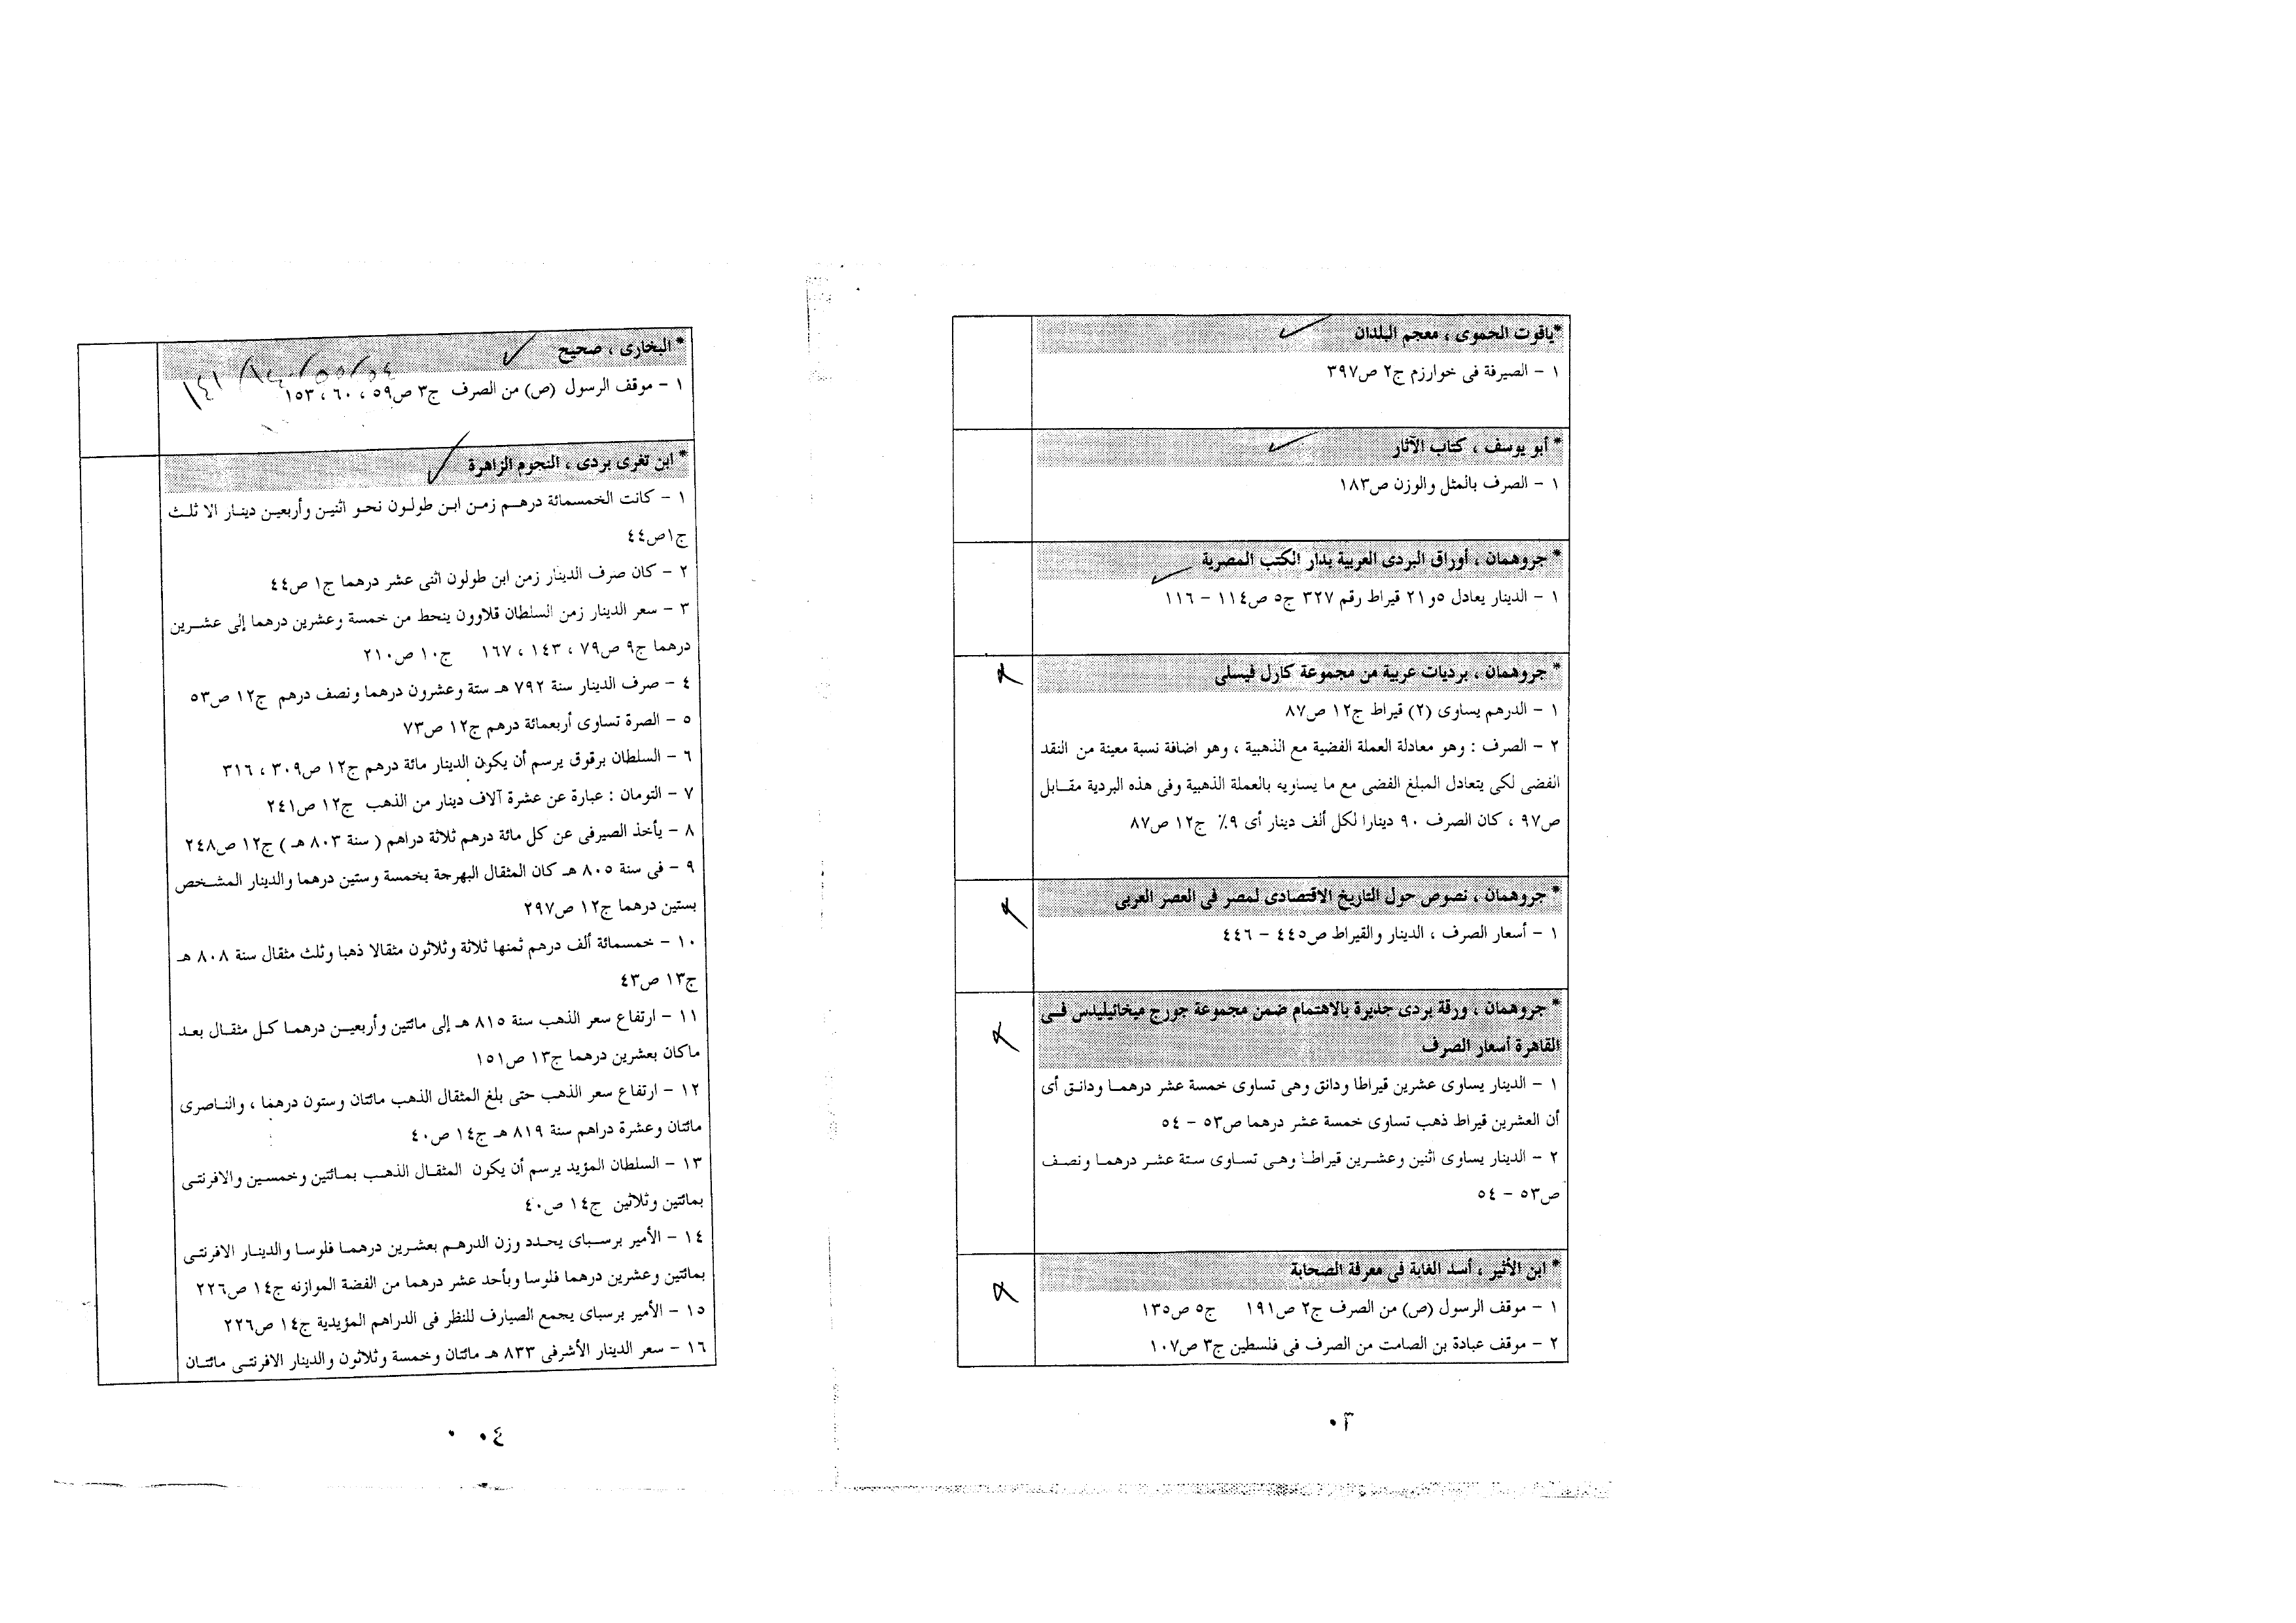 *ياقوت الحموى ، معجم البلدان
١ – الصيرفة فى خوارزم ج٢ ص٣٩٧
* أبو يوسف ، كتاب الآثار
١ – الصرف بالمثل والوزن ص١٨٣
* جروهمان ، أوراق البردى العربية بدار الكتب المصرية
١ – الدينار يعادل ٥و٢١ قيراط رقم ٣٢٧ ج٥ ص١١٤ – ١١٦
* جروهمان ، برديات عربية من مجموعة كارل فيسلى
١ – الدرهم يساوى (٢) قيراط ج١٢ ص٨٧
٢ – الصرف : وهو معادلة العملة الفضية مع الذهبية ، وهو اضافة نسبة معينة من النقد
الفضى لكى يتعادل المبلغ الفضى مع ما يساويه بالعملة الذهبية وفى هذه البردية مقابل
ص٩٧ ، كان الصرف ٩٠ دينارا لكل ألف دينار أى ٩٪ ج١٢ ص٨٧
* جروهمان ، نصوص حول التاريخ الاقتصادى لمصر فى العصر العربى
١ – أسعار الصرف ، الدينار والقيراط ص٤٤٥ – ٤٤٦
* جروهمان ، ورقة بردى جديرة بالاهتمام ضمن مجموعة جورج ميخائيليدس فى
القاهرة أسعار الصرف
١ – الدينار يساوى عشرين قيراطا ودانق وهى تساوى خمسة عشر درهما ودانق أى
أن العشرين قيراط ذهب تساوى خمسة عشر درهما ص٥٣ – ٥٤
٢ – الدينار يساوى اثنين وعشرين قيراطا وهى تساوى ستة عشر درهما ونصف
ص٥٣ – ٥٤
* ابن الأثير ، أسد الغابة فى معرفة الصحابة
١ – موقف الرسول (ص) من الصرف ج٢ ص١٩١ ج٥ ص١٣٥
٢ – موقف عبادة بن الصامت من الصرف فى فلسطين ج٣ ص١٠٧
* البخارى ، صحيح
١ – موقف الرسول (ص) من الصرف ج٣ ص٥٩ ، ٦٠ ، ١٥٣
* ابن تغرى بردى ، النجوم الزاهرة
١ – كانت الخمسمائة درهم زمن ابن طولون نحو اثنين وأربعين دينار الا ثلث
ج١ص٤٤
٢ – كان صرف الدينار زمن ابن طولون اثنى عشر درهما ج١ ص٤٤
٣ – سعر الدينار زمن السلطان قلاوون ينحط من خمسة وعشرين درهما إلى عشرين
درهما ج٩ ص٧٩ ، ١٤٣ ، ١٦٧ ج١٠ ص٢١٠
٤ – صرف الدينار سنة ٧٩٢ هـ ستة وعشرون درهما ونصف درهم ج١٢ ص٥٣
٥ – الصرة تساوى أربعمائة درهم ج١٢ ص٧٣
٦ – السلطان برقوق يرسم أن يكون الدينار مائة درهم ج١٢ ص٣٠٩ ، ٣١٦
٧ – التومان : عبارة عن عشرة آلاف دينار من الذهب ج١٢ ص٢٤١
٨ – يأخذ الصيرفى عن كل مائة درهم ثلاثة دراهم ( سنة ٨٠٣ هـ ) ج١٢ ص٢٤٨
٩ – فى سنة ٨٠٥ هـ كان المثقال البهرجة بخمسة وستين درهما والدينار المشخص
بستين درهما ج١٢ ص٢٩٧
١٠ – خمسمائة ألف درهم ثمنها ثلاثة وثلاثون مثقالا ذهبا وثلث مثقال سنة ٨٠٨ هـ
ج١٣ ص٤٣
١١ – ارتفاع سعر الذهب سنة ٨١٥ هـ إلى مائتين وأربعين درهما كل مثقال بعد
ماكان بعشرين درهما ج١٣ ص١٥١
١٢ – ارتفاع سعر الذهب حتى بلغ المثقال الذهب مائتان وستون درهما ، والناصرى
مائتان وعشرة دراهم سنة ٨١٩ هـ ج١٤ ص٤٠
١٣ – السلطان المؤيد يرسم أن يكون المثقال الذهب بمائتين وخمسين والافرنتى
بمائتين وثلاثين ج١٤ ص٤٠
١٤ – الأمير برسباى يحدد وزن الدرهم بعشرين درهما فلوسا والدينار الافرنتى
بمائتين وعشرين درهما فلوسا وبأحد عشر درهما من الفضة الموازنه ج١٤ ص٢٢٦
١٥ – الأمير برسباى يجمع الصيارف للنظر فى الدراهم المؤيدية ج١٤ ص٢٢٦
١٦ – سعر الدينار الأشرفى ٨٣٣ هـ مائتان وخمسة وثلاثون والدينار الافرنتى مائتان